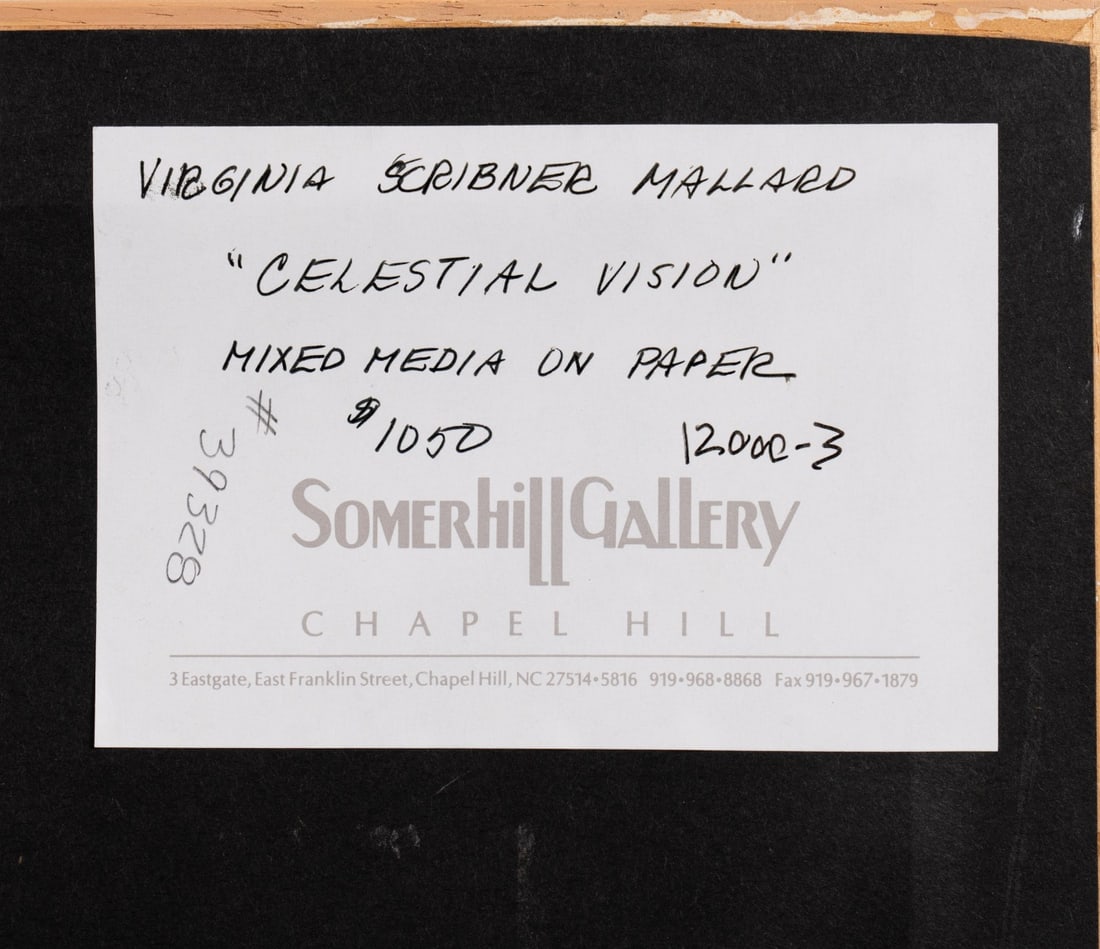 VIRGINIA SCRIBNER MALLARD
"CELESTIAL VISION"
MIXED MEDIA ON PAPER
$1050 1200C-3
# 39328
SOMERhill GAllERY
CHAPEL HILL
3 Eastgate, East Franklin Street, Chapel Hill, NC 27514•5816 919•968•8868 Fax 919•967•1879